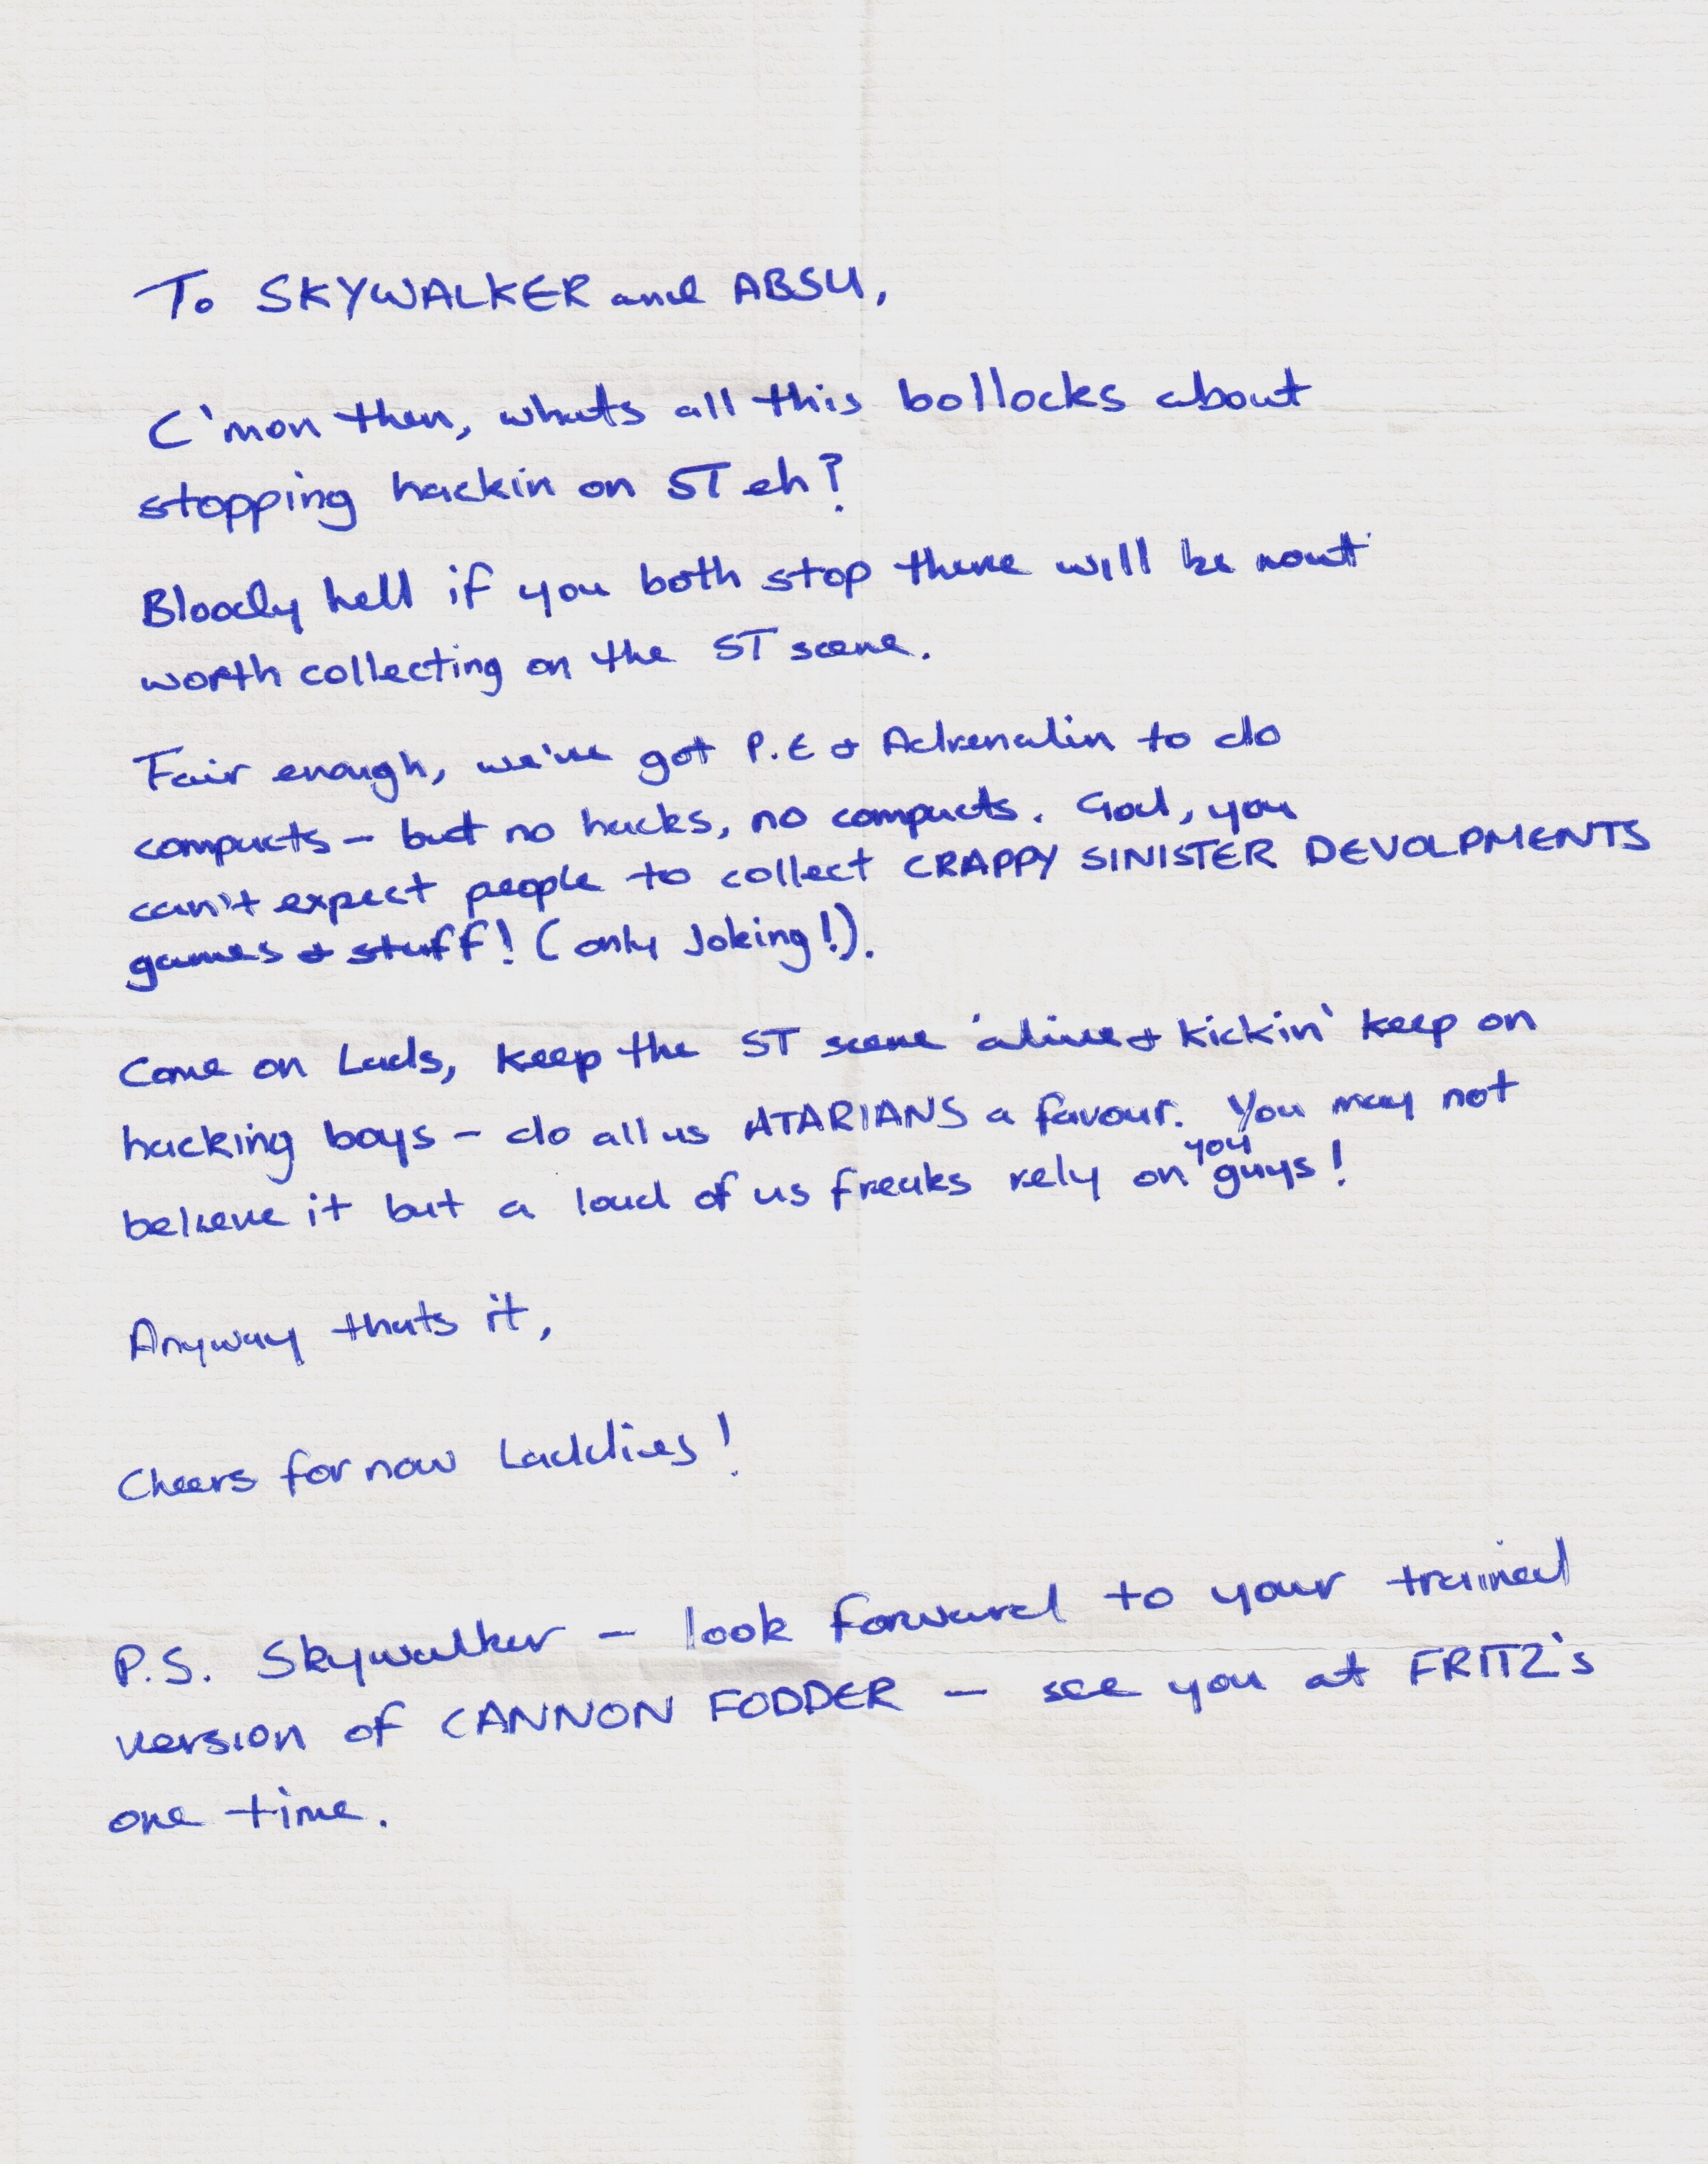 To SKYWALKER and ABSU,
C'mon then, whats all this bollocks about
stopping hackin on ST eh?
Bloody hell if you both stop there will be nowt
worth collecting on the ST scene.
Fair enough, we've got P.E & Adrenalin to do
compacts - but no hacks, no compacts. God, you
can't expect people to collect CRAPPY SINISTER DEVOLPMENTS
games & stuff! (only Joking!).
Come on Lads, keep the ST scene 'alive & kickin' keep on
hacking boys - do all us ATARIANS a favour. You may not
believe it but a load of us freaks rely on you guys!
Anyway thats it,
Cheers for now Laddies!
P.S. Skywalker - look forward to your trained
version of CANNON FODDER - see you at FRITZ's
one time.